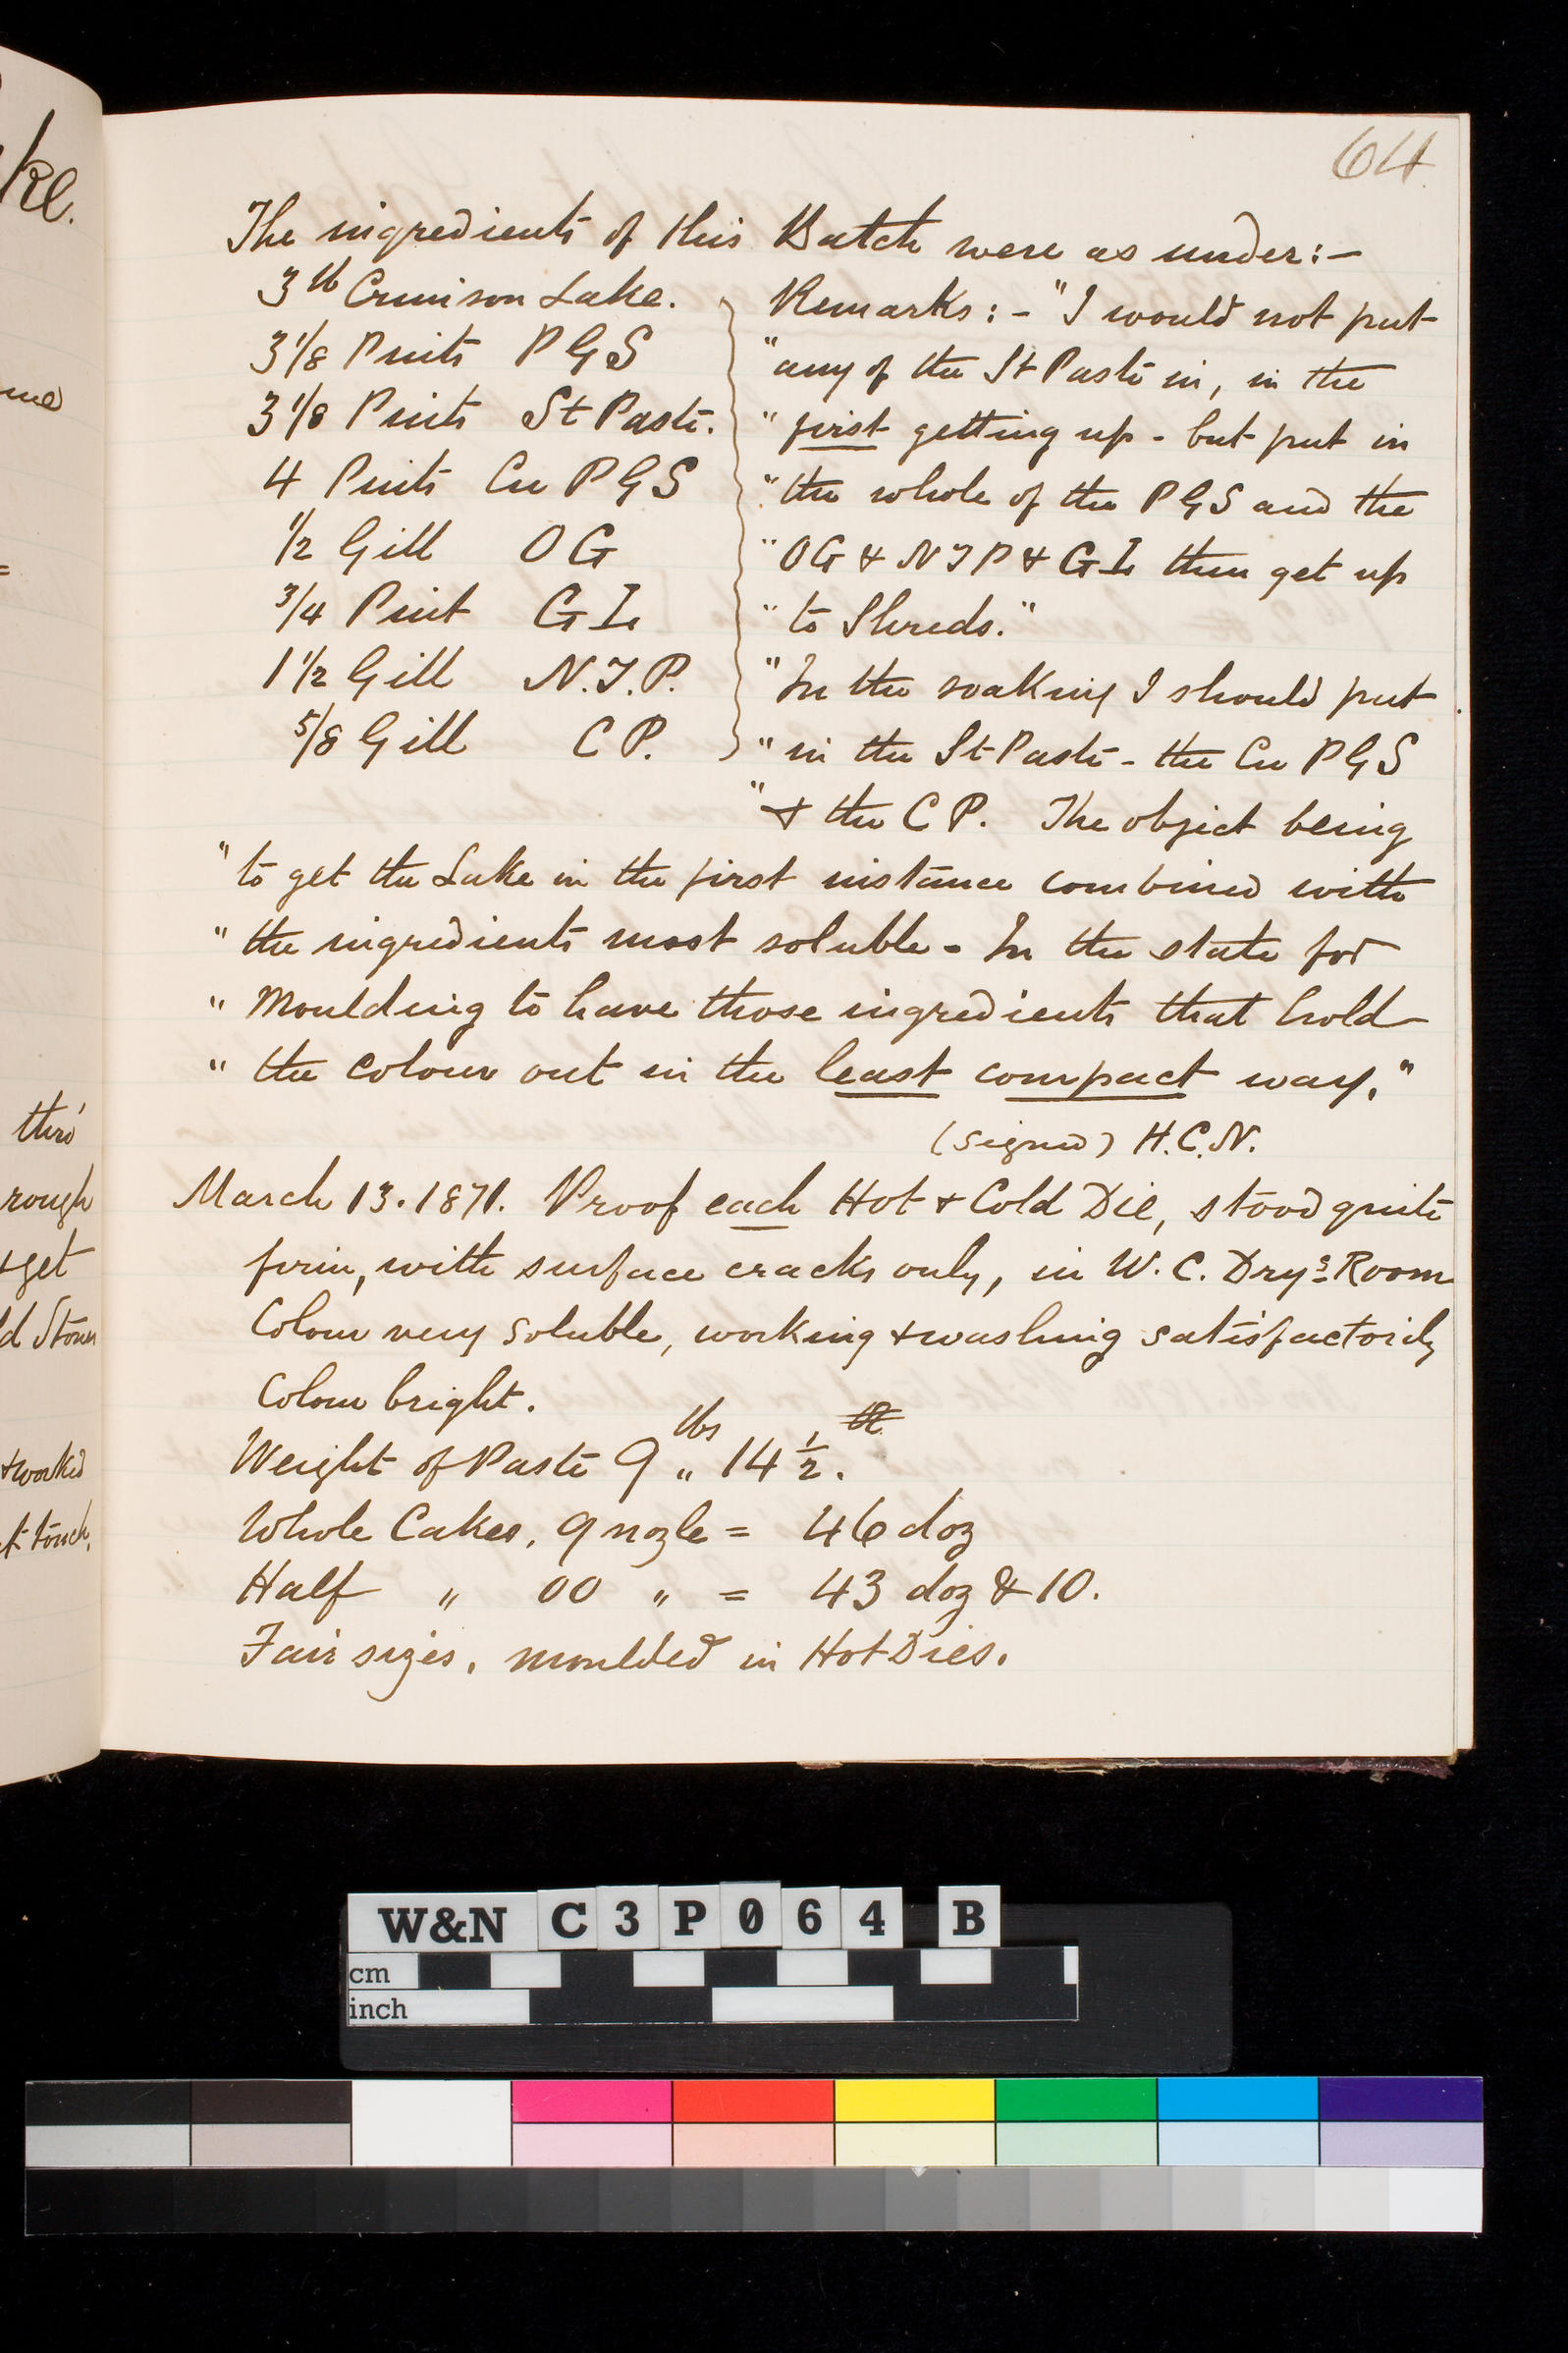 64
The ingredients of this Batch were as under:-
3 lb Crimson Lake.
3 1/8 Pints PGS
3 1/8 Pints St Paste.
4 Pints Cu PGS
1/2 Gill OG
3/4 Pint GI
1 1/2 Gill N.T.P.
5/8 Gill CP.
Remarks:- "I would not put
"any of the St Paste in, in the
"first getting up - but put in
"the whole of the PGS and the
"OG & NTP & GI then get up
"to Shreds."
"In the soaking I should put
"in the St Paste - the Cu PGS
"& the CP. The object being
"to get the Lake in the first instance combined with
"the ingredients most soluble - In the state for
"Moulding to have those ingredients that hold
"the colour out in the least compact way."
(signed) H.C.N.
March 13. 1871. Proof each Hot & Cold Die, stood quite
firm, with surface cracks only, in W.C. Drys Room
Colour very soluble, working & washing satisfactorily
Colour bright.
Weight of Paste 9 lbs „ 14 1/2.
Whole Cakes, 9 nozle = 46 doz
Half „ 00 „ = 43 doz & 10.
Fair sizes, moulded in Hot Dies.
ke.
thro'
rough
+ get
d Stones
+ worked
t touch,
W&N C3P064 B
cm
inch